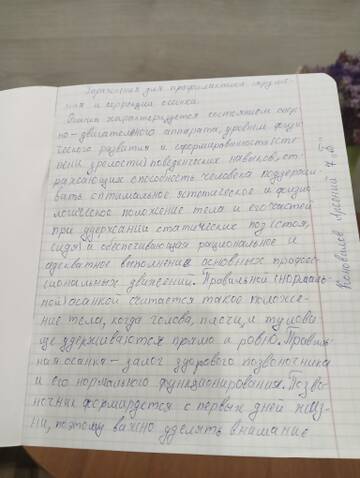 Упражнения для профилактики наруше-
ния и коррекции осанки.
Осанка характеризуется состоянием опор-
но-двигательного аппарата, уровнем физи-
ческого развития и сформированности (сте-
пени зрелости) поведенческих навыков, от-
ражающих способность человека поддержи-
вать оптимальное эстетическое и физио-
логическое положение тела и его частей
при удержании статических поз (стоя,
сидя) и обеспечивающая рациональное и
адекватное выполнение основных профес-
сиональных движений. Правильной (нормаль-
ной) осанкой считается такое положе-
ние тела, когда голова, плечи и тулови
ще удерживаются прямо и ровно. Правиль-
ная осанка – залог здорового позвоночника
и его нормального функционирования. Позво-
ночник формируется с первых дней жиз-
ни, поэтому важно уделять внимание
Коновалов Арсений 7 "Б"